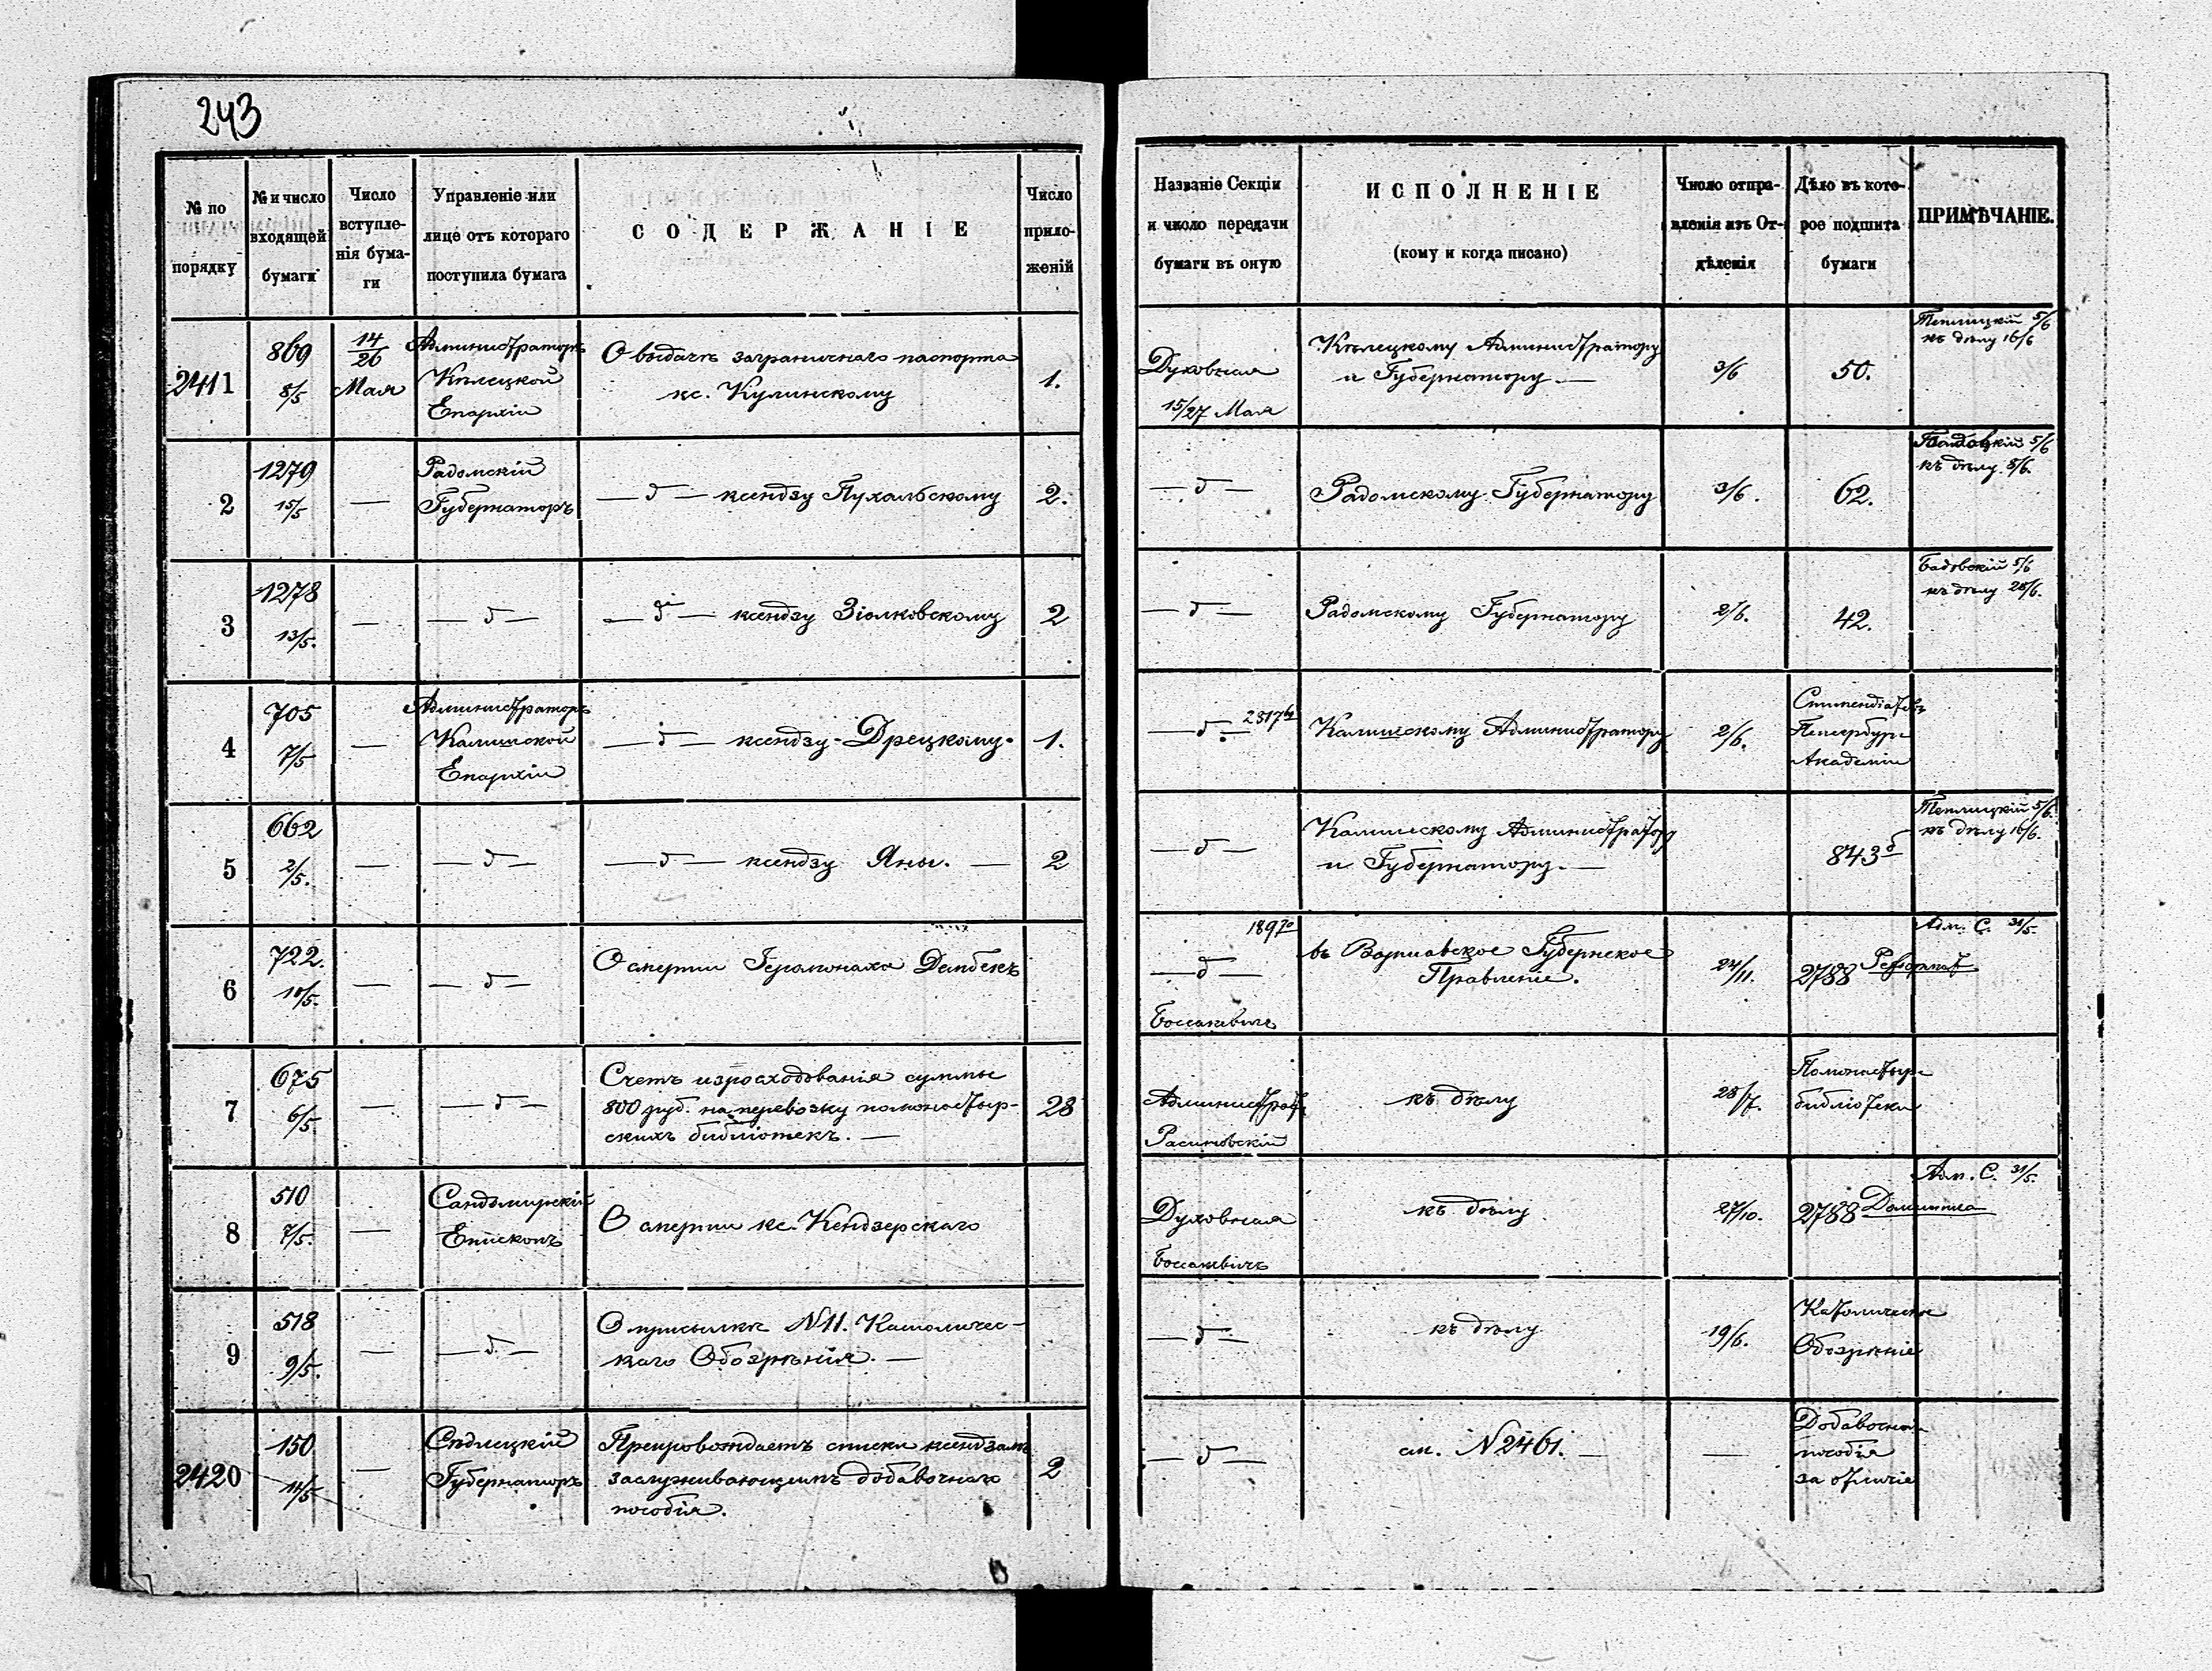 243
№ по порядку
№ и число входящей бумаги
Число вступле-нія бума-ги
Управленіе или лице отъ котораго поступила бумага
СОДЕРЖАНІЕ
Число прило-женій
Названіе Секціи и число передачи бумаги въ оную
ИСПОЛНЕНІЕ
(кому и когда писано)
Число отпра-вленія изъ От-дѣленія
Дѣло въ кото-рое подшита бумаги
ПРИМѢЧАНІЕ.
2411
869
8/5
14/26
Мая
Администраторъ
Кѣлецкой
Епархіи
О выдачѣ заграничнаго паспорта
кс. Кулинскому
1.
Духовная
15/27 Мая
Кѣлецкому Администратору
и Губернатору. —
3/6
50.
5/6
къ дѣлу 16/6
2
1279
15/5
—
Радомскій
Губернаторъ
— д — ксендзу Пухальскому
2.
— д —
Радомскому Губернатору
3/6.
62.
5/6
къ дѣлу 8/6.
3
1278
13/5.
—
— д —
— д — ксендзу Зіолковскому
2
— д —
Радомскому Губернатору
2/6.
42.
Бадовскій 5/6
къ дѣлу 28/6.
4
705
7/5
—
Администраторъ
Калишской
Епархіи
— д — ксендзу Дрецкому.
1.
— д —
Калишскому Администратору
2/6.
Стипендіатовъ
Петербург
Академіи
5
662
2/5.
—
— д —
— д — ксендзу Яны. —
2
— д —
Калишскому Администратору
и Губернатору. —
843 б
5/6.
къ дѣлу 16/6.
6
722.
10/5.
—
— д —
О смерти Іеромонаха Дембекъ
1897
— д —
Боссакевичъ
въ Варшавское Губернское
Правленіе.
24/11.
2788 Реформат
Адм. С. 31/5.
7
675
6/5
—
— д —
Счетъ израсходованія суммы
800 руб. на перевозку помонастыр-
скихъ библіотекъ. —
28
Администрат.
къ дѣлу
28/7.
Помонастыр.
библіотеки
8
510
7/5.
—
Сандомирскій
Епископъ
О смерти кс. Кендзерскаго
Духовная
Боссакевичъ
къ дѣлу
27/10.
2788
Адм. С. 31/5.
9
518
9/5.
—
— д —
О присылкѣ N 11. Католичес-
каго Обозрѣнія. —
— д —
къ дѣлу
19/6.
Католическое
Обозрѣніе
2420
150
11/5
—
Сѣдлецкій
Губернаторъ
Препровождаетъ списки ксендзамъ
заслуживающимъ добавочнаго
пособія.
2
— д —
см. N 2461. —
—
Добавочн.
пособія
за отличіе